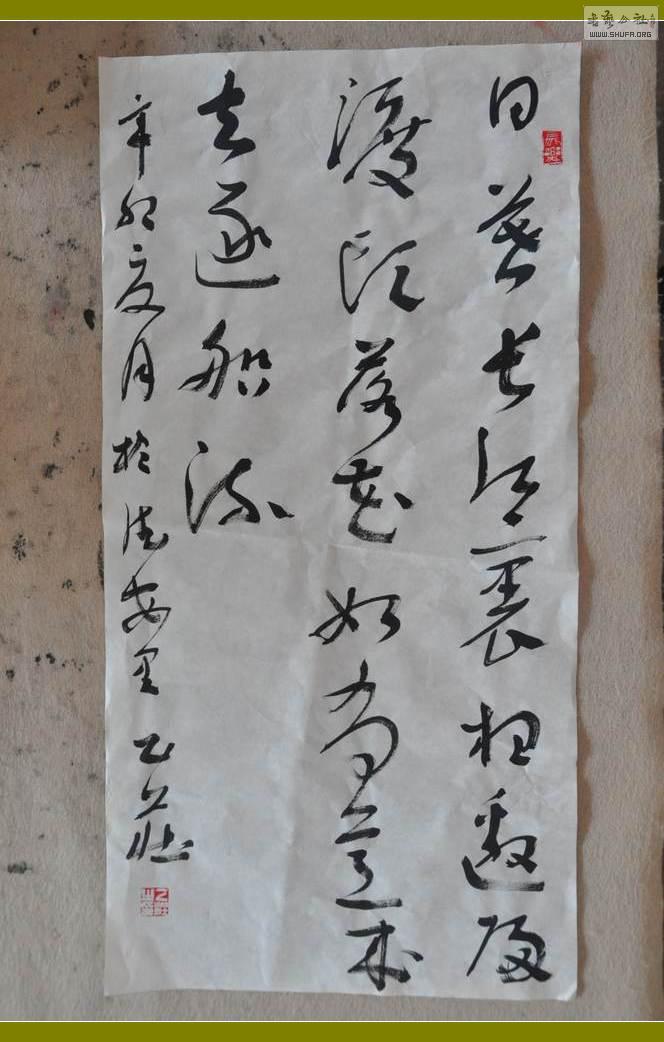 日暮长江里相邀归
渡头落花如有意来
去逐船流
辛卯之夏月于德安里乙庄
书艺公社
WWW.SHUFA.ORG